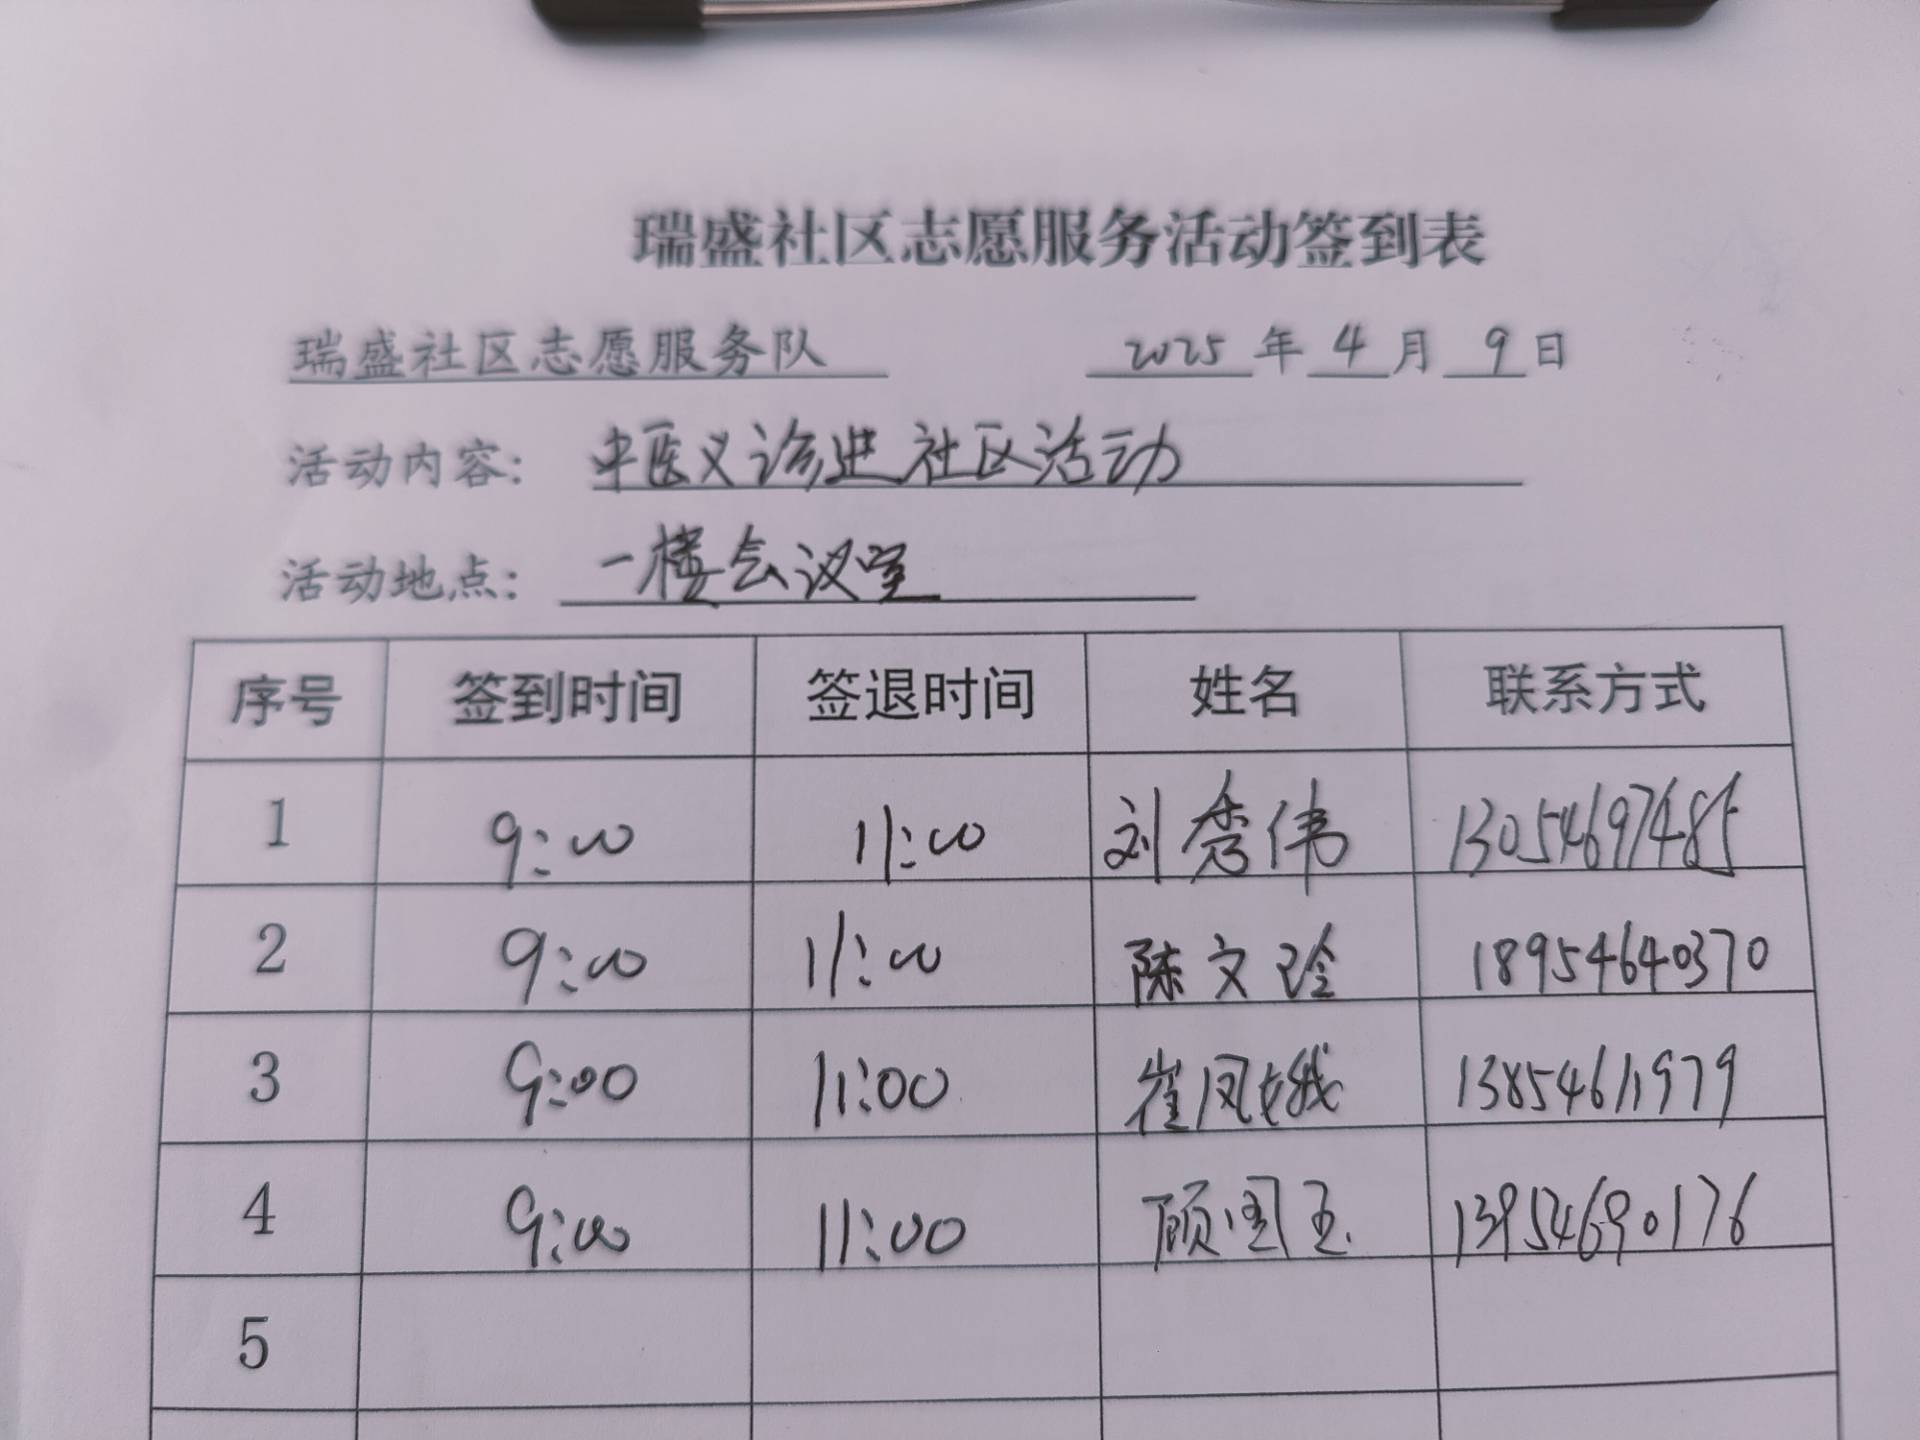 瑞盛社区志愿服务活动签到表
瑞盛社区志愿服务队 2025年4月9日
活动内容：中医义诊进社区活动
活动地点：一楼会议室
序号 签到时间 签退时间 姓名 联系方式
1 9:00 11:00 刘秀伟 13054697485
2 9:00 11:00 陈文玲 18954640370
3 9:00 11:00 崔凤娥 13854611979
4 9:00 11:00 顾国玉 13954690176
5